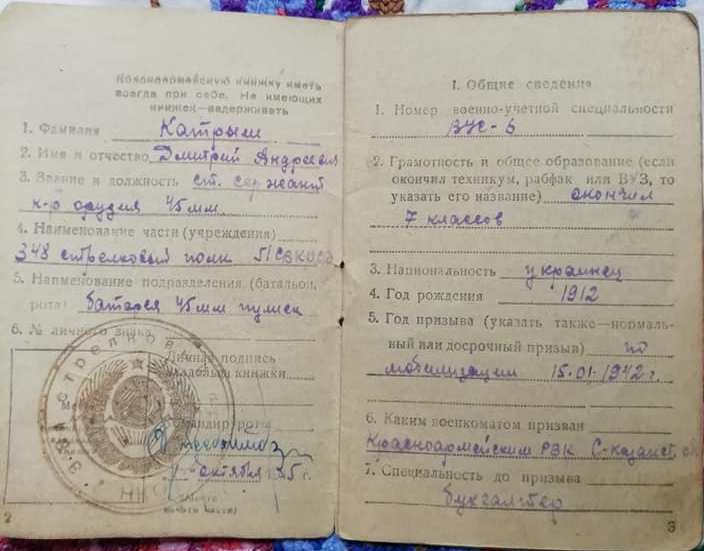 Красноармейскую книжку иметь
всегда при себе. Не имеющих
книжек—задерживать
1. Фамилия Катрыш
2. Имя и отчество Дмитрий Андреевич
3. Звание и должность ст. сержант
к-р орудия 45мм
4. Наименование части (учреждения)
348 стрелковый полк
5. Наименование подразделения (батальон,
рота) батарея 45мм пушек
6. № личного знака
Личная подпись
владельца книжки
Командир роты
октября 1945 г.
(Место
печати части)
2
I. Общие сведения
1. Номер военно-учетной специальности
ВУС-6
2. Грамотность и общее образование (если
окончил техникум, рабфак или ВУЗ, то
указать его название) окончил
7 классов
3. Национальность украинец
4. Год рождения 1912
5. Год призыва (указать также—нормаль-
ный или досрочный призыв) по
мобилизации 15.01.1942 г.
6. Каким военкоматом призван
Красноармейским РВК С-Казахст.
7. Специальность до призыва
бухгалтер
3